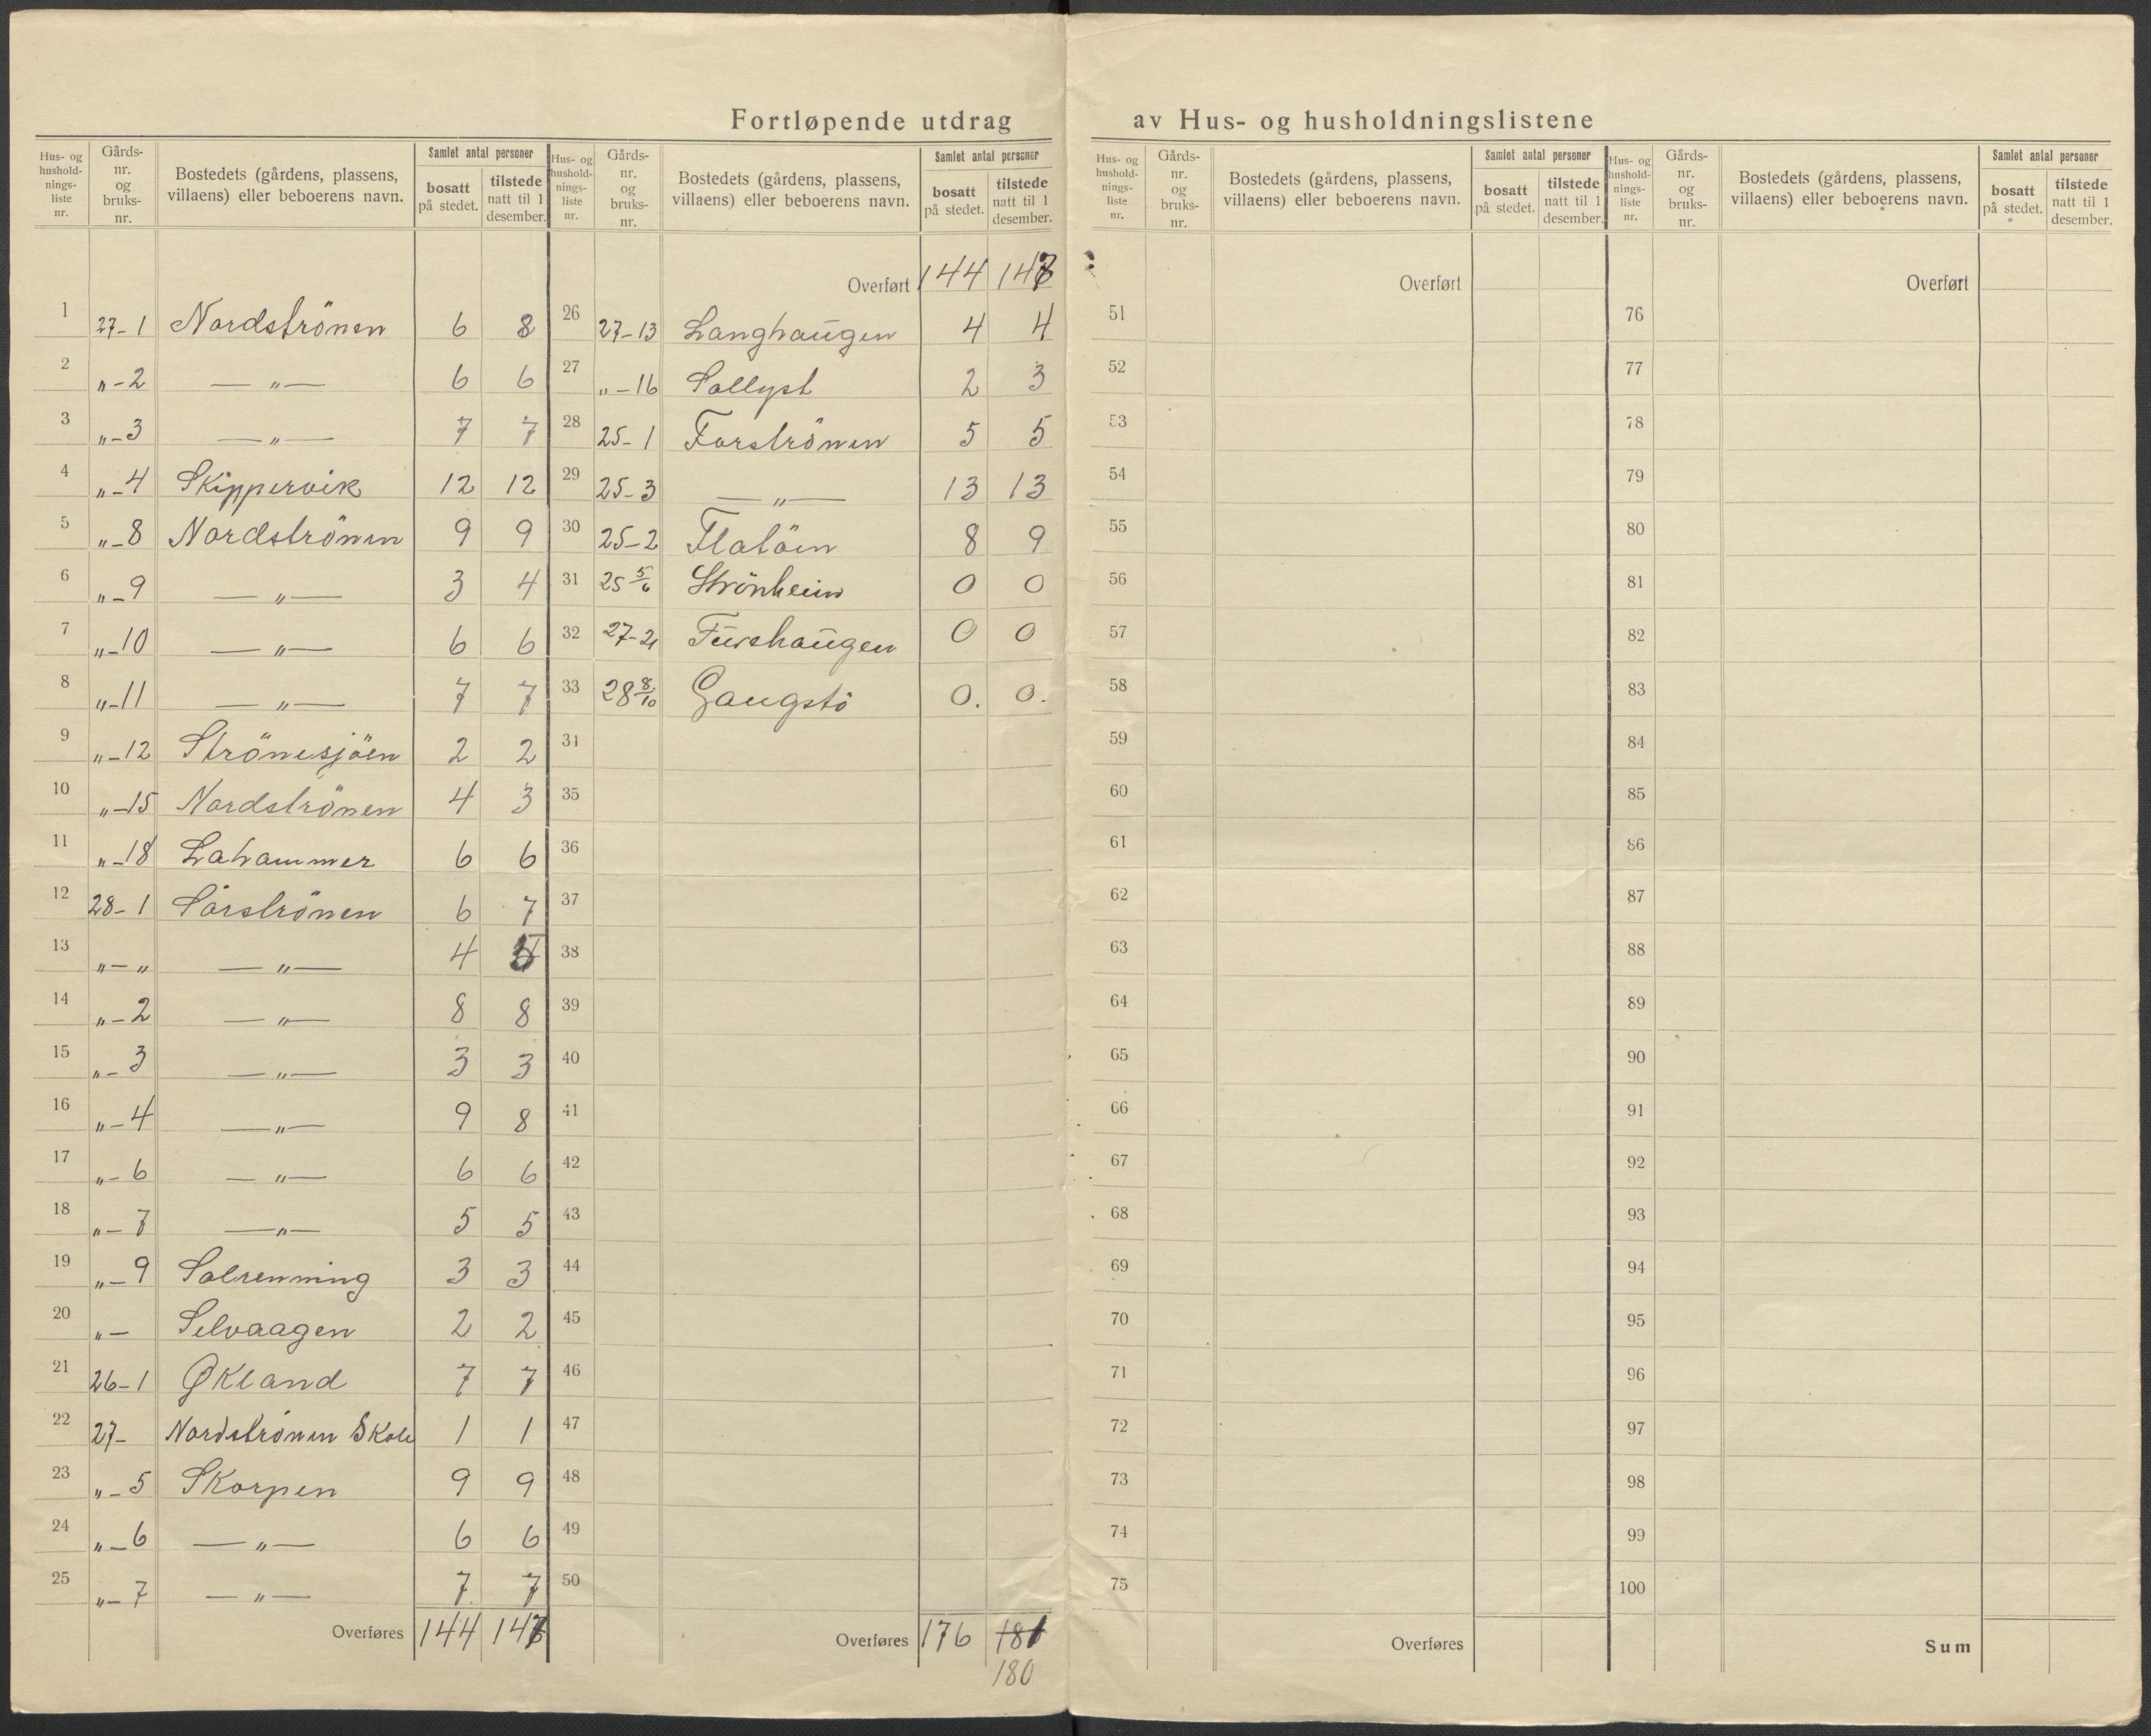 Fortløpende utdrag av Hus- og husholdningslistene
Hus- og hushold-nings-liste nr. Gårds-nr. og bruks-nr. Bostedets (gårdens, plassens, villaens) eller beboerens navn. Samlet antal personer bosatt på stedet. tilstede natt til 1 desember.
1 27-1 Nordströnen 6 8
2 "-2 —"— 6 6
3 "-3 —"— 7 7
4 "-4 Skippervik 12 12
5 "-8 Nordströnen 9 9
6 "-9 —"— 3 4
7 "-10 —"— 6 6
8 "-11 —"— 7 7
9 "-12 Strönesjöen 2 2
10 "-15 Nordströnen 4 3
11 "-18 Lahammer 6 6
12 28-1 Sörströnen 6 7
13 "-" —"— 4
14 "-2 —"— 8 8
15 "-3 —"— 3 3
16 "-4 —"— 9 8
17 "-6 —"— 6 6
18 "-7 —"— 5 5
19 "-9 Solrenning 3 3
20 "- Selvaagen 2 2
21 26-1 Økland 7 7
22 27- Nordströnen Skole 1 1
23 "-5 Skorpen 9 9
24 "-6 —"— 6 6
25 "-7 —"— 7 7
Overføres 144
Hus- og hushold-nings-liste nr. Gårds-nr. og bruks-nr. Bostedets (gårdens, plassens, villaens) eller beboerens navn. Samlet antal personer bosatt på stedet. tilstede natt til 1 desember.
Overført 144
26 27-13 Langhaugen 4 4
27 "-16 Sollyst 2 3
28 25-1 Forströnen 5 5
29 25-3 —"— 13 13
30 25-2 Flatöen 8 9
31 25 5/6 Strönheim 0 0
32 27-21 Furehaugen 0 0
33 28 8/10 Gaugstö 0. 0.
34
35
36
37
38
39
40
41
42
43
44
45
46
47
48
49
50
Overføres 176 181
180
Hus- og hushold-nings-liste nr. Gårds-nr. og bruks-nr. Bostedets (gårdens, plassens, villaens) eller beboerens navn. Samlet antal personer bosatt på stedet. tilstede natt til 1 desember.
Overført
51
52
53
54
55
56
57
58
59
60
61
62
63
64
65
66
67
68
69
70
71
72
73
74
75
Overføres
Hus- og hushold-nings-liste nr. Gårds-nr. og bruks-nr. Bostedets (gårdens, plassens, villaens) eller beboerens navn. Samlet antal personer bosatt på stedet. tilstede natt til 1 desember.
Overført
76
77
78
79
80
81
82
83
84
85
86
87
88
89
90
91
92
93
94
95
96
97
98
99
100
Sum